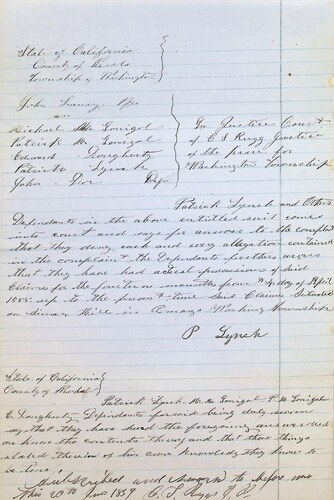 State of California
County of
Township of Washington
John
vs
Michael Mc Gonigol
Patrick Mc Gonigol
Edward Dougherty
Patrick Lynch
John Doe Defts
In Justice Court
of C S Rugg Justice
of the peace for
Washington Township
Patrick Lynch and Others
Dependents in the above entitled suit comes
into court and says for answer to the complaint
that they deny each and every allegation contained
in the complaint the Dependents further
that they have had actual possession of Said
Claims for the fourteen months from 4 day of April
1858 up to the present time Said Claims Situated
on Hill in Township
P Lynch
State of California
County of
Patrick Lynch M Mc Gonigol P Mc Gonigol
E Dougherty Dependents being duly sworn
say that they have heard the foregoing answer read
and know the contents Thereof and that the things
stated Therein of his own knowledge they know to
be true
Subscribed and sworn to before me
this 20th June 1859 C, S Rugg J. P.